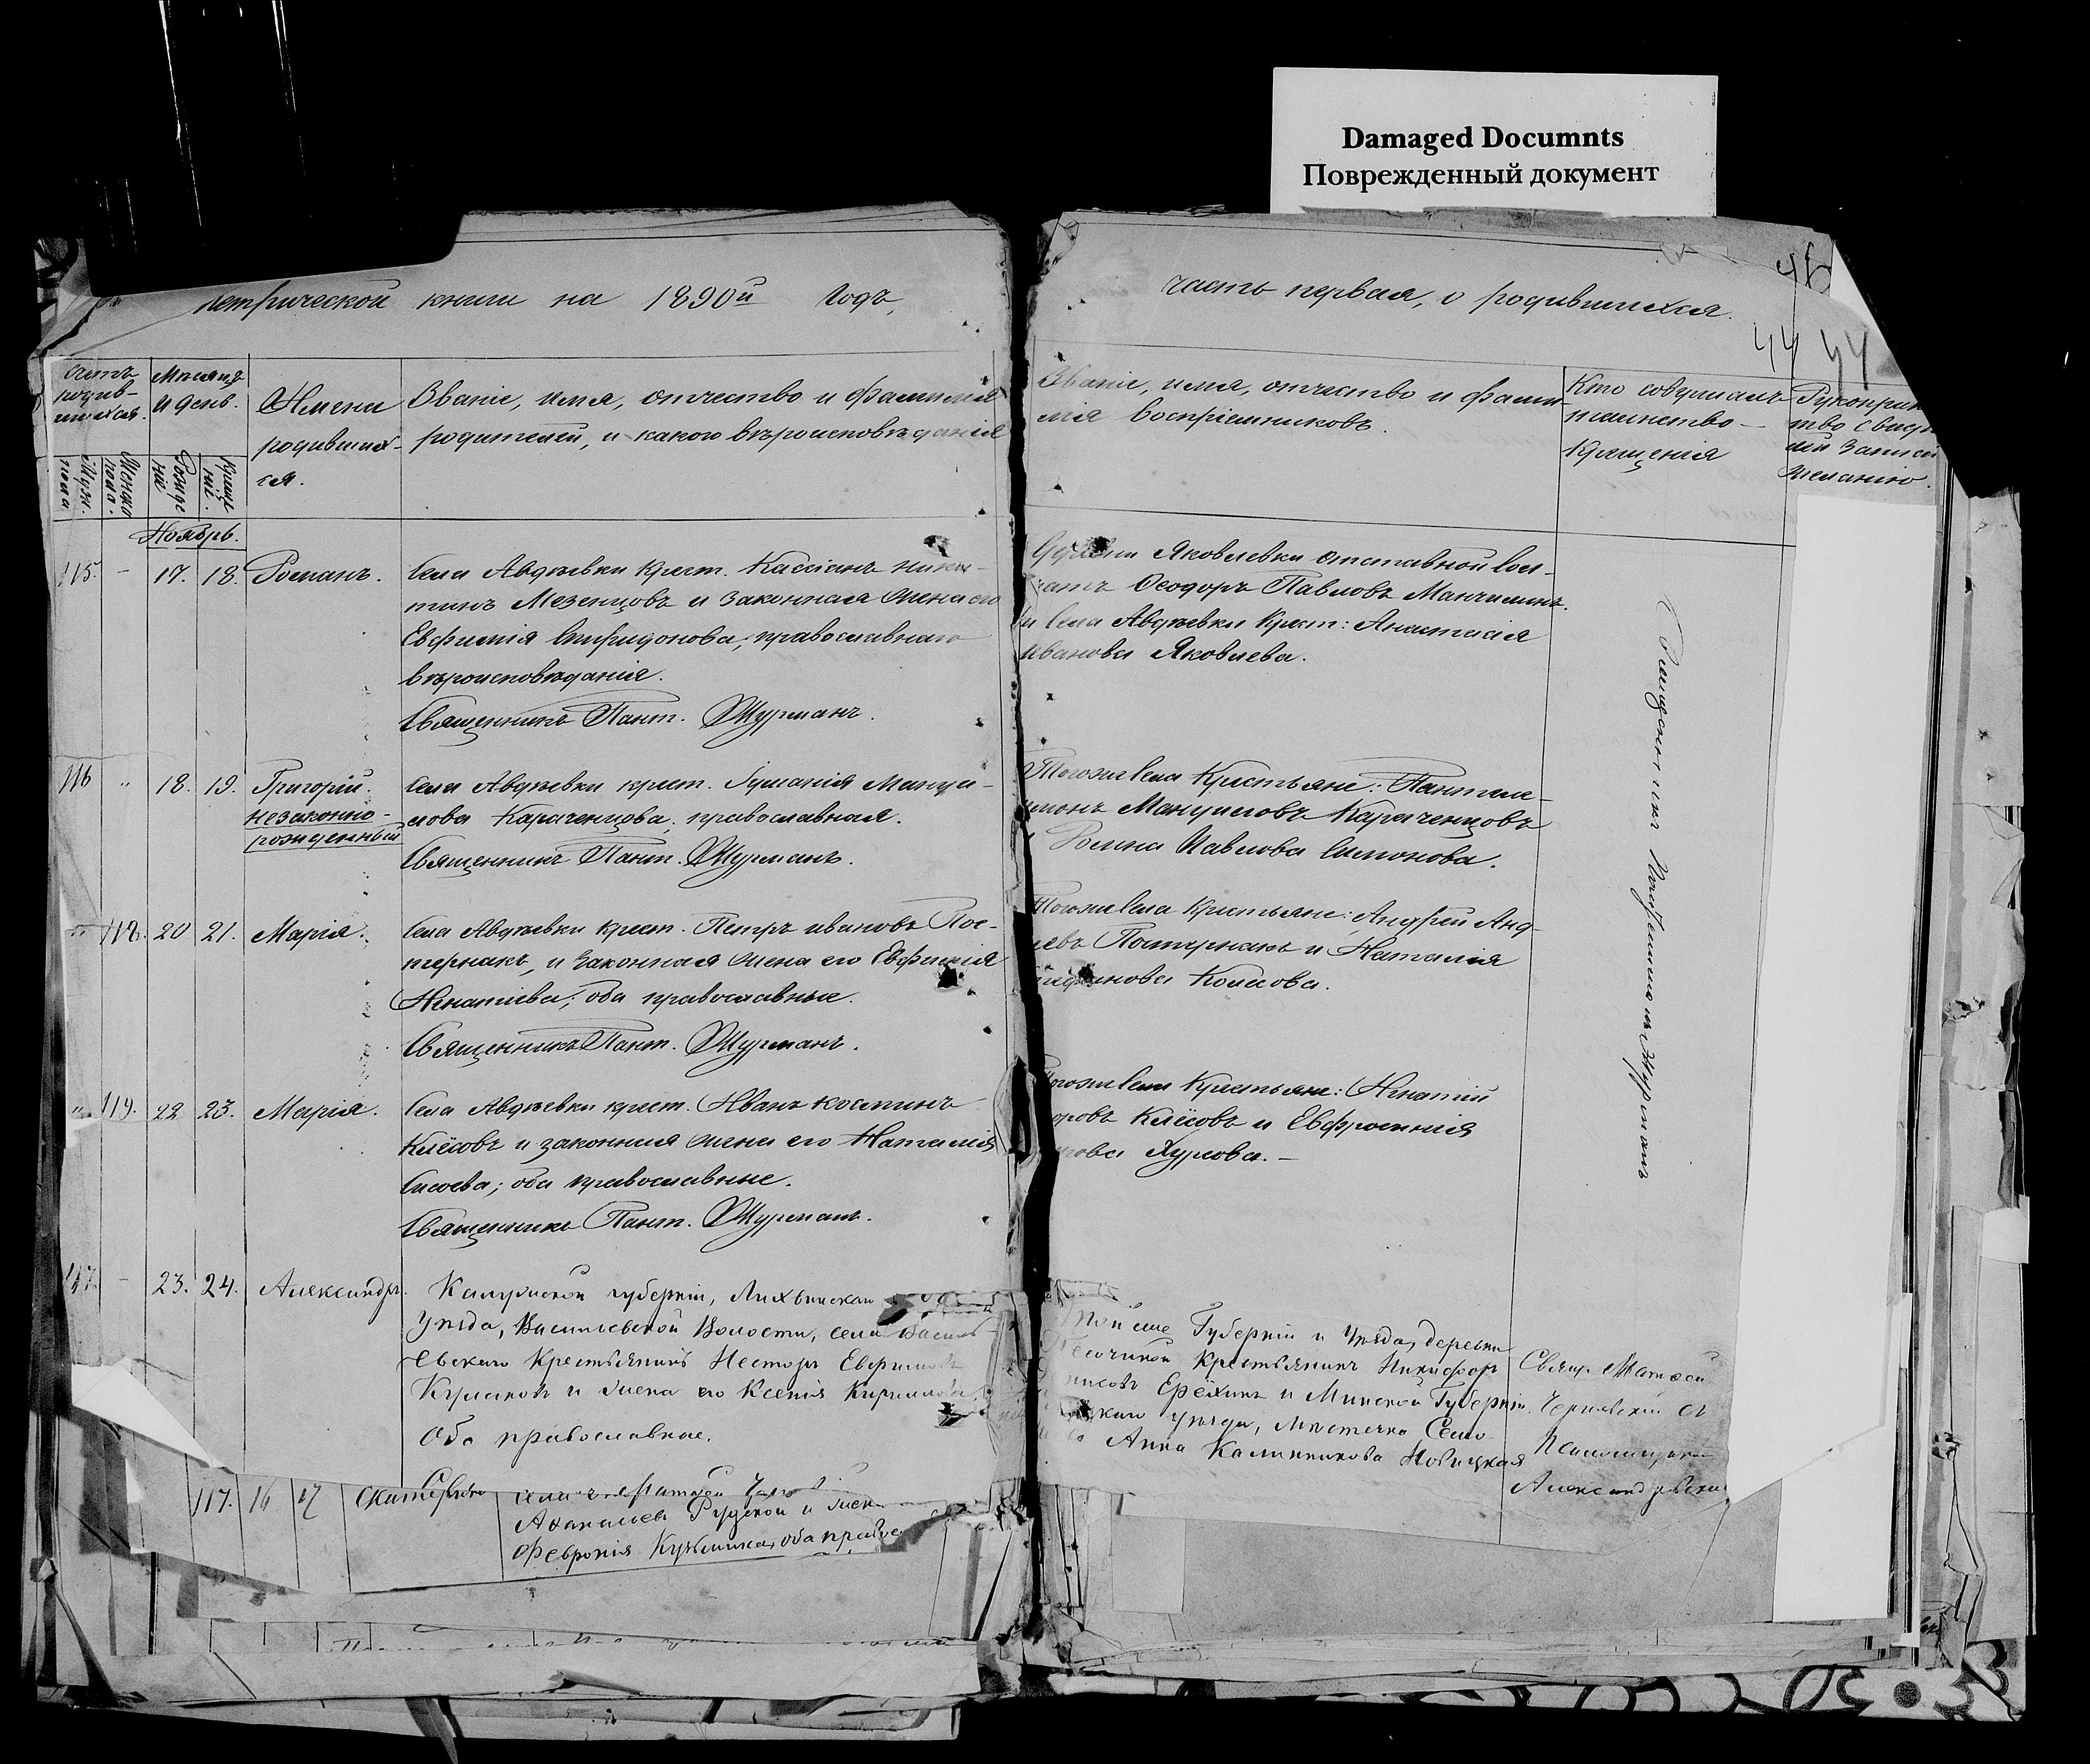 Damaged Documnts
Поврежденный документ
метрической книги на 1890й годъ,
часть первая, о родившихся.
44 44
Счетъ родив-шихся.
Мужс. пола
Женска пола.
Мѣсяцъ и день.
Рожде нiе
Креще нiе.
Имена
родивших-
ся.
Званiе, имя, отчество и фамилiя
родителей, и какого вѣроисповѣданiя
Званiе, имя, отчество и фами
лiя воспрiемниковъ.
Кто совершалъ
таинство
крещенiя
Рукоприк
тво свидѣ
лей записи
желанiю.
Ноябрь.
115. – 17. 18. Романъ.
Села Авдѣевки крест. Кассiанъ Ники-
тинъ Мезенцовъ и законная жена его
Евфимiя Спиридонова, православнаго
вѣроисповѣданiя.
Священникъ Пант. Журманъ.
Яковлевки отставной Сол-
датъ Ѳеодоръ Павловъ Манчилинъ.
и села Авдѣевки крест: Анастасiя
Иванова Яковлева.
116 " 18. 19. Григорiй.
незаконно-
рожденный
Села Авдѣевки крест. Iулianiя Мануи-
лова Караченцова, православная.
Священникъ Пант. Журманъ.
Тогоже села крестьяне: Пантеле-
имонъ Мануиловъ Караченцовъ
Павлова Симонова.
" 118. 20 21. Марiя.
Села Авдѣевки крест. Петръ Ивановъ Пос-
тернакъ, и законная жена его Евфимiя
Игнатiева; оба православные.
Священникъ Пант. Журманъ.
Тогоже села крестьяне: Андрей Анд-
евъ Постернакъ и Наталiя
Колесова.
" 119. 22 23. Марiя.
Села Авдѣевки крест. Иванъ Косминъ
Клёсовъ и законная жена его Наталiя
Сисоева; оба православные.
Священникъ Пант. Журманъ.
Тогоже села крестьяне: Игнатiй
оровъ Клёсовъ и Евфросинiя
нова Хурлова. –
Священникъ Пантелеимонъ Журманъ
117. – 23. 24. Александръ.
Калужской губернiи, Лихвинскаго
уѣзда, Васильевской волости, села Василь-
евскаго крестьянинъ Несторъ Евфимовъ
Кулаковъ и жена его Ксенiя Кириллова,
Оба православные.
Той же Губернiи и уѣзда, деревни
Песочной крестьянинъ Никифоръ
Ерёхинъ и Минской Губернiи
скаго уѣзда, мѣстечка
Анна Калинникова Новицкая
Свящ. Матѳей
Чернявскiй
Псаломщикъ
Александровскiй
117. 16 17 Екатерина
Аѳанасьевъ Рудской и жена
Февронiя Кузьмина, оба право